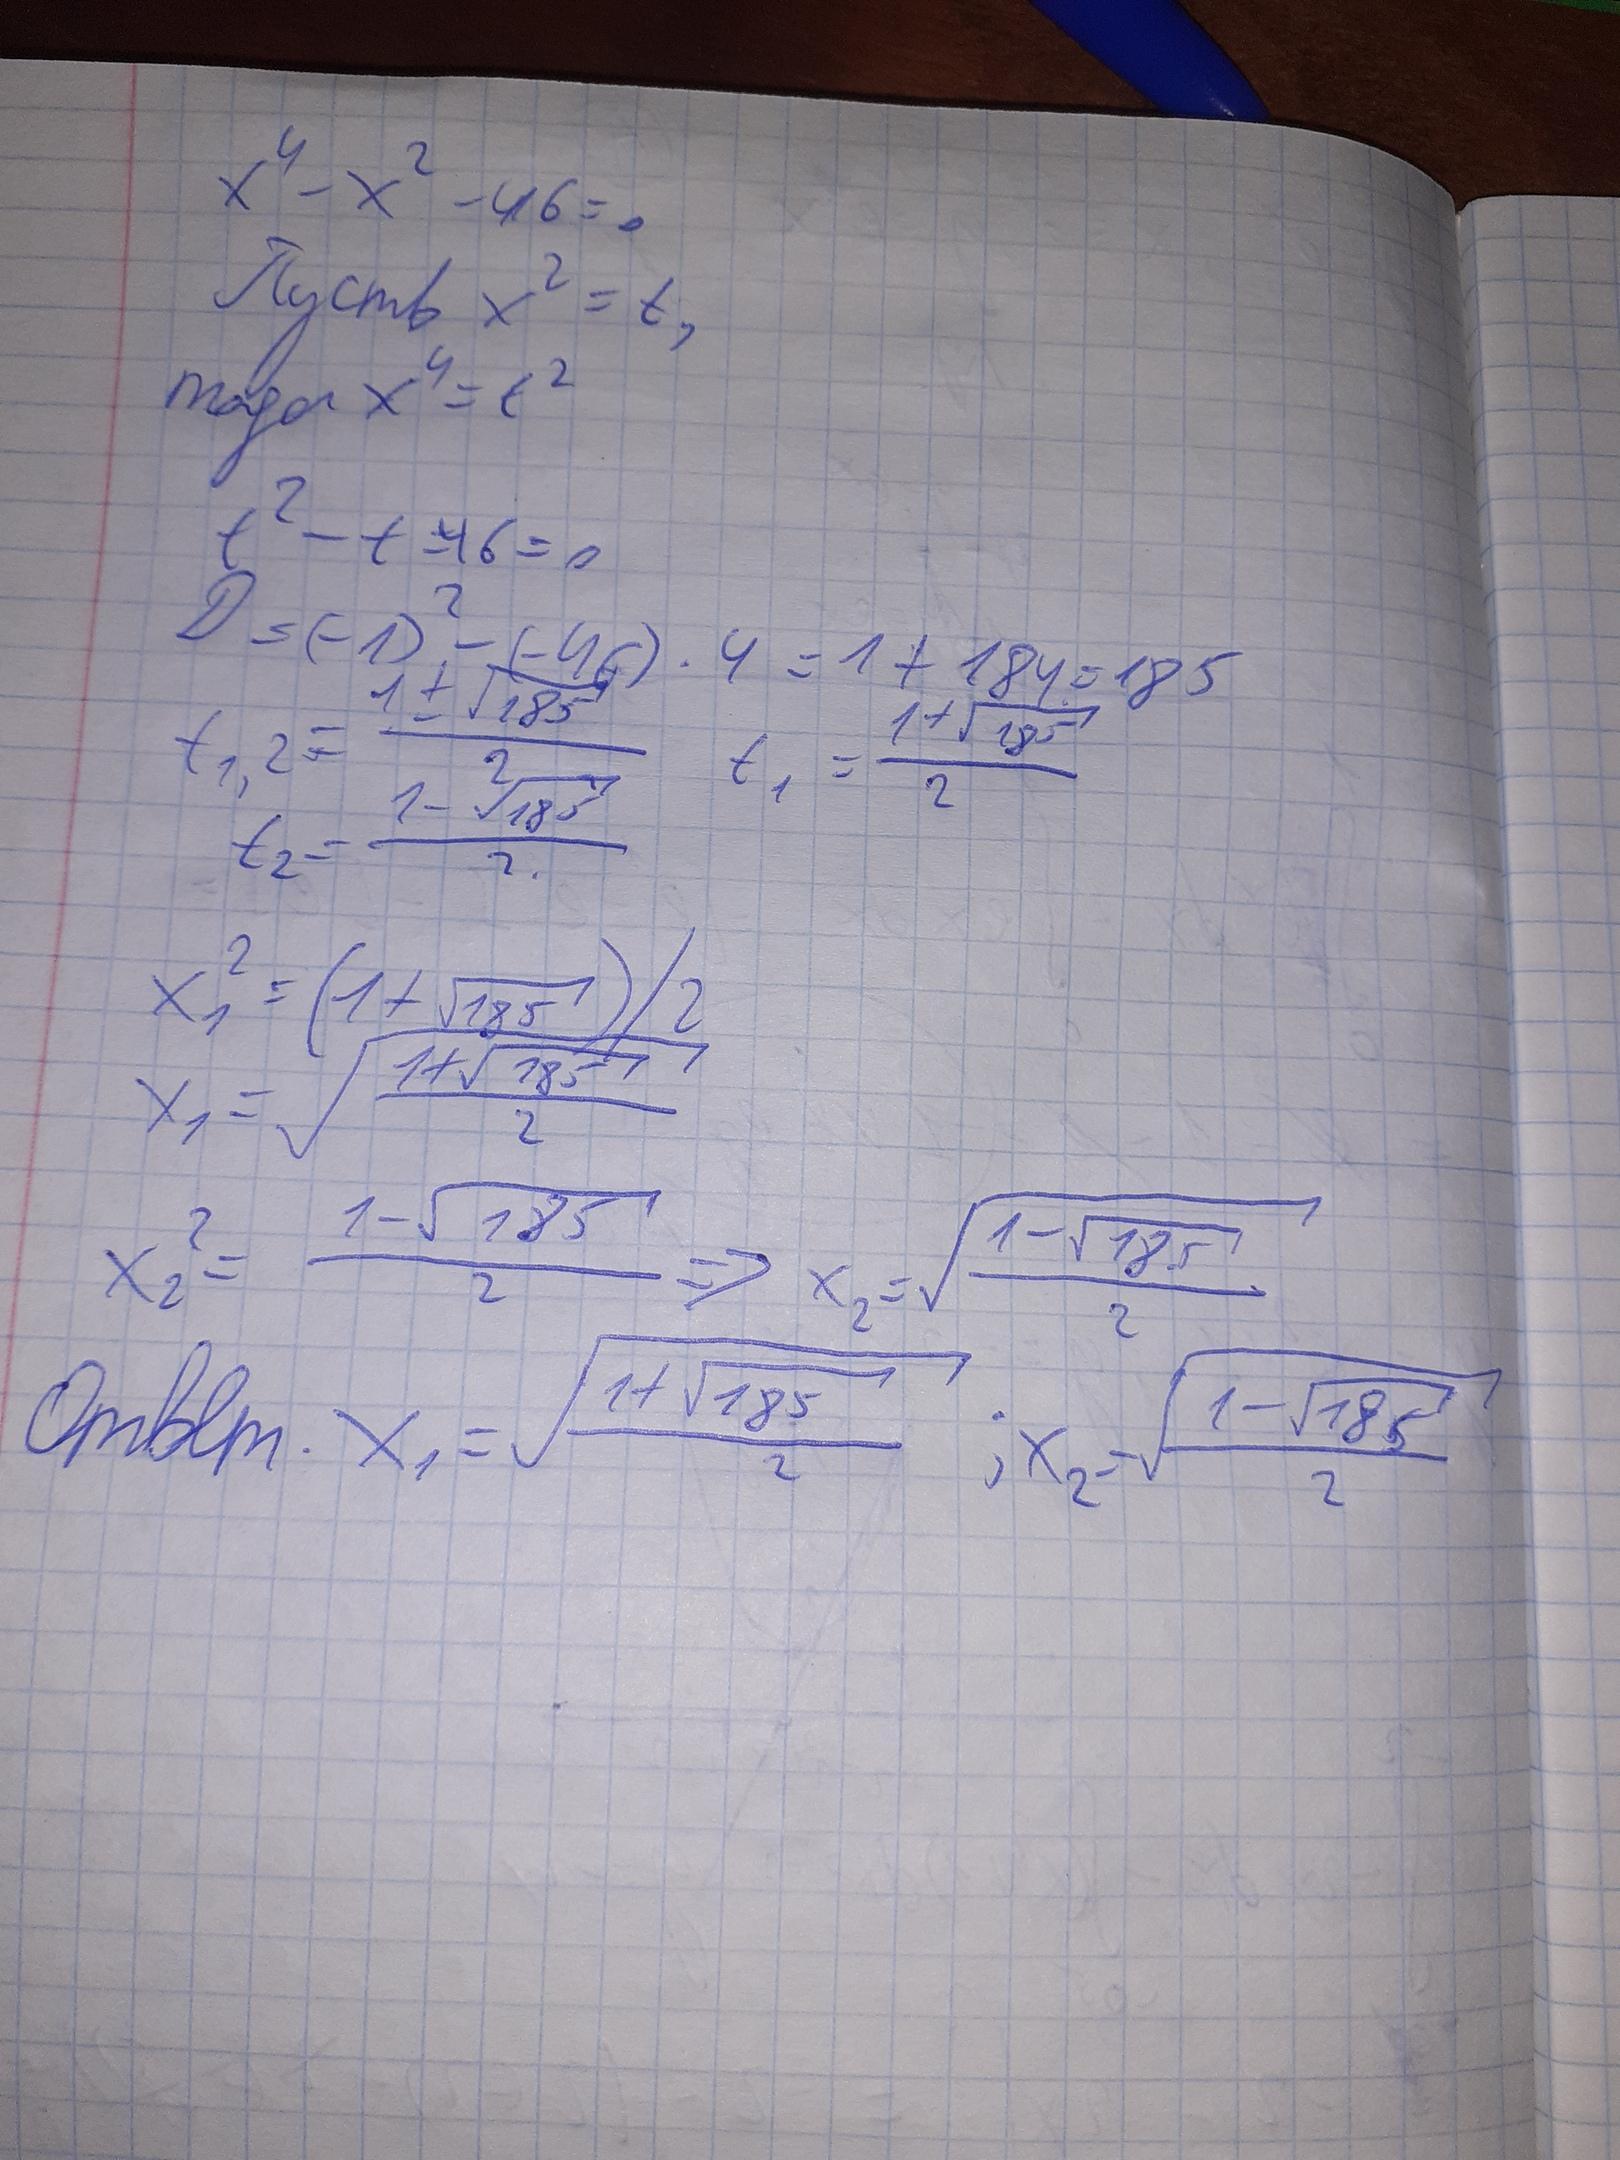 x⁴ - x² - 46 = 0
Пусть x² = t,
тогда x⁴ = t²
t² - t - 46 = 0
D = (-1)² - (-46) · 4 = 1 + 184 = 185
t₁,₂ = (1 ± √185)/2 t₁ = (1 + √185)/2
t₂ = (1 - √185)/2.
x₁² = (1 + √185)/2
x₁ = √((1 + √185)/2)
x₂² = (1 - √185)/2 => x₂ = √((1 - √185)/2)
Ответ. x₁ = √((1 + √185)/2) ; x₂ = √((1 - √185)/2)